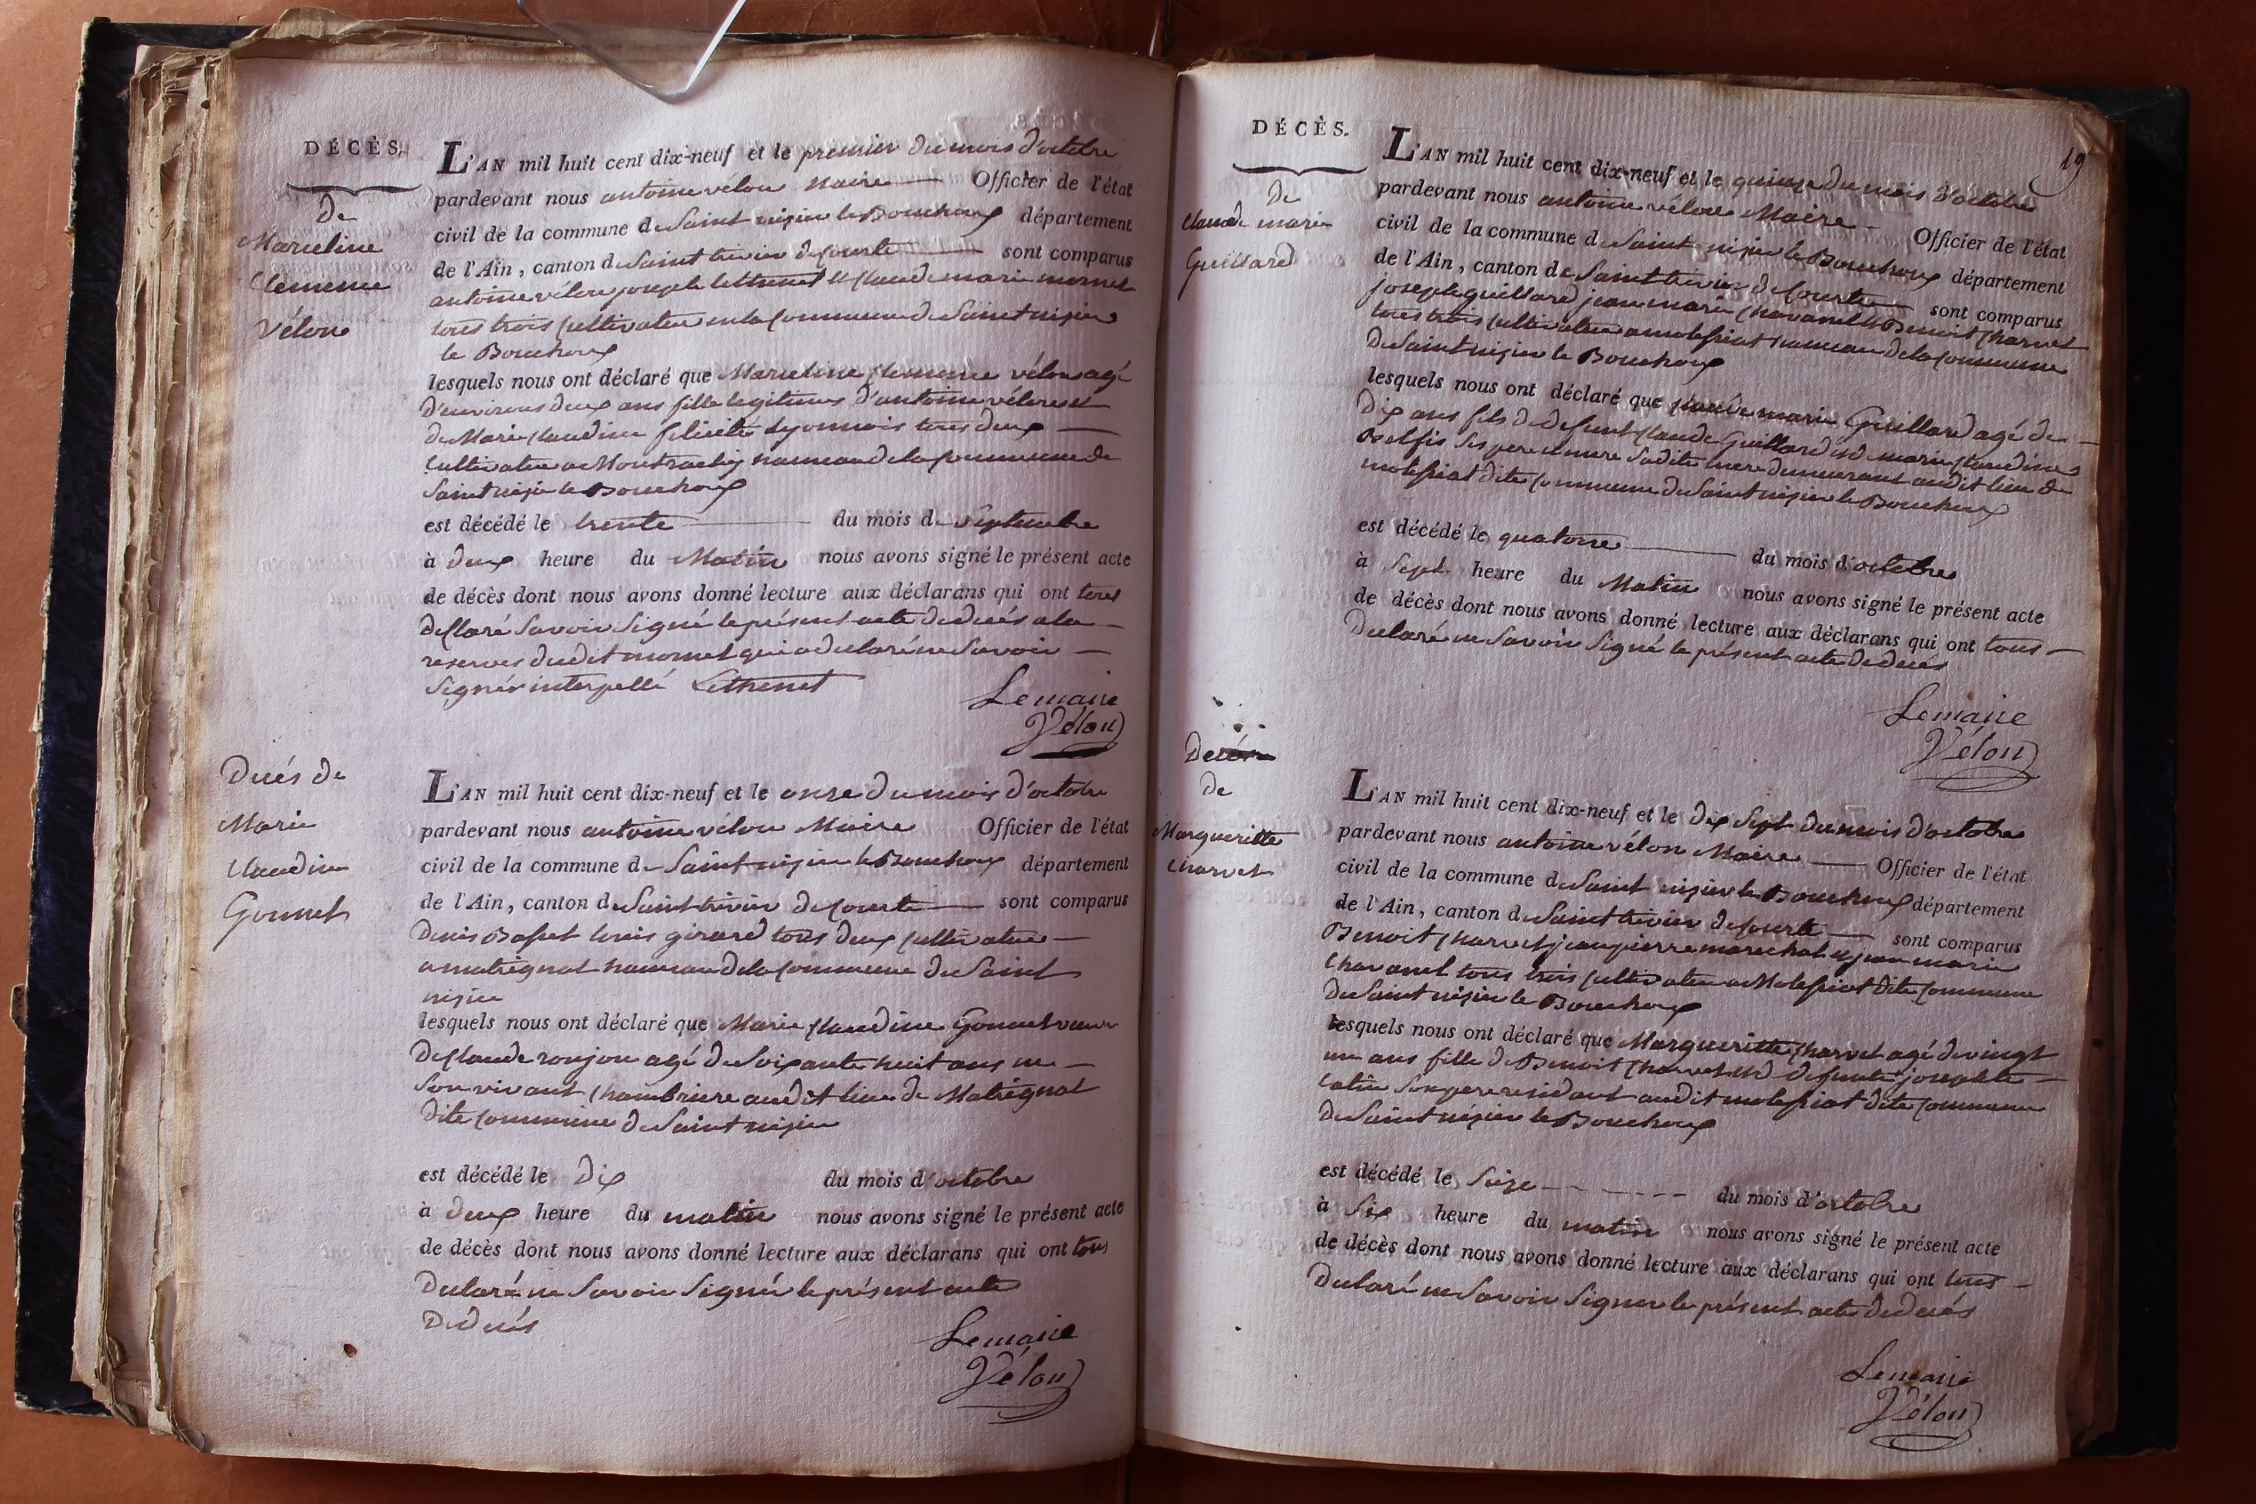 DÉCÈS.
de
Marceline
Clemence
Vélon
L'AN mil huit cent dix-neuf et le premier du mois d'octobre
pardevant nous antoine vélon Maire Officier de l'état
civil de la commune de Saint nizier le Bouchoux département
de l'Ain, canton de Saint trivier de Courte sont comparus
antoine vélon joseph lethenet et Claude marie mornet
tous trois Cultivateur en la Commune de Saint nizier
le Bouchoux
lesquels nous ont déclaré que Marceline Clemence vélon agé
d'environs deux ans fille legitimes d'antoine vélon et
de Marie Claudine felicité Lyonnois tous deux
Cultivateur a Montrachy hameau de la Commune de
Saint nizier le Bouchoux
est décédé le trente du mois de Septembre
à deux heure du Matin nous avons signé le présent acte
de décès dont nous avons donné lecture aux déclarans qui ont tous
declaré Savoir Signé le présent acte de decés a la
reserves dudit mornet qui a declaré ne Savoir
Signér interpellé Lethenet
Lemaire
Vélon
Decés de
Marie
Claudine
Gonnet
L'AN mil huit cent dix-neuf et le onze du mois d'octobre
pardevant nous antoine vélon Maire Officier de l'état
civil de la commune de Saint nizier le Bouchoux département
de l'Ain, canton de Saint trivier de Courte sont comparus
Denis Basset louis girard tous deux Cultivateur
a matrignat hameau de la Commune de Saint
nizier
lesquels nous ont déclaré que Marie Claudine Gonnet veuve
de Claude roujon agé de Soixante huit ans en
Son vivant Chambriere audit lieu de Matrignat
dite Commune de Saint nizier
est décédé le dix du mois d'octobre
à deux heure du matin nous avons signé le présent acte
de décès dont nous avons donné lecture aux déclarans qui ont tous
Declaré ne Savoir Signér le présent acte
De decés
Lemaire
Vélon
19
DÉCÈS.
De
Claude marie
Guillard
L'AN mil huit cent dix-neuf et le quinze du mois d'octobre
pardevant nous antoine vélon Maire Officier de l'état
civil de la commune de Saint nizier le Bouchoux département
de l'Ain, canton de Saint trivier de Courte sont comparus
joseph guillard jean marie Chavanel et Benoit Charvet
tous trois Cultivateur a molefriat hameau de la Commune
de Saint nizier le Bouchoux
lesquels nous ont déclaré que Claude marie Guillard agé de
Dix ans fils de defunt Claude Guillard et de marie Claudine
ses pere et mere Sadite mere demeurant audit lieu de
molefriat dite Commune de Saint nizier le Bouchoux
est décédé le quatorze du mois d'octobre
à Sept heure du Matin nous avons signé le présent acte
de décès dont nous avons donné lecture aux déclarans qui ont tous
Declaré ne Savoir Signé le présent acte de decés
Lemaire
Vélon
Decés
De
Margueritte
Charvet
L'AN mil huit cent dix-neuf et le dix Sept du mois d'octobre
pardevant nous antoine vélon Maire Officier de l'état
civil de la commune de Saint nizier le Bouchoux département
de l'Ain, canton de Saint trivier de Courte sont comparus
Benoit Charvet jean pierre marechal et jean marie
Chavanel tous trois Cultivateur a Molefriat dite Commune
de Saint nizier le Bouchoux
lesquels nous ont déclaré que Margueritte Charvet agé de vingt
un ans fille de Benoit Charvet et de defunte josephte
Catin Son pere residant audit molefriat dite Commune
de Saint nizier le Bouchoux
est décédé le Seize du mois d'octobre
à Six heure du matin nous avons signé le présent acte
de décès dont nous avons donné lecture aux déclarans qui ont tous
Declaré ne Savoir Signer le présent acte de decés
Lemaire
Vélon